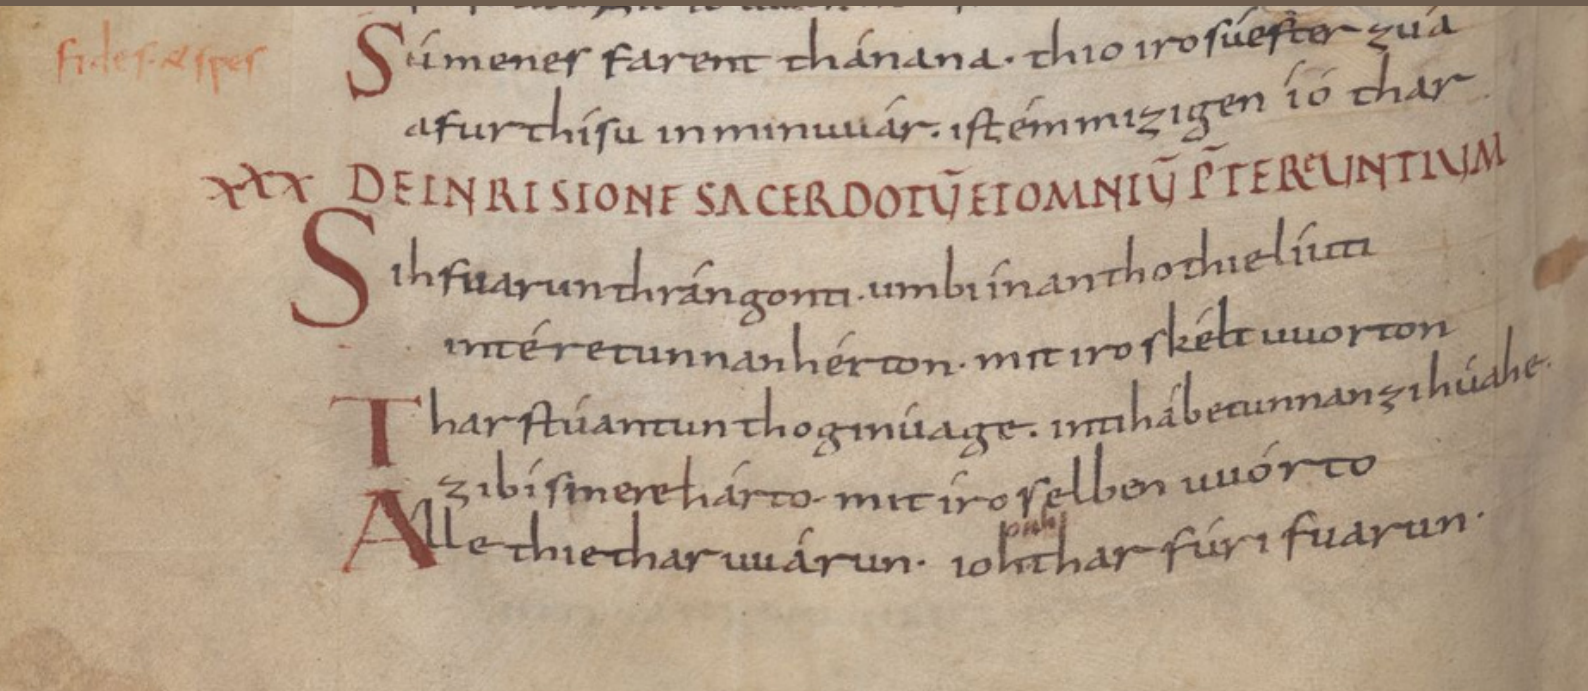 fides. & spes
Súmenes farent thánana. thio iro suester zuá
afur thisu in min uuár. ist ém mizigen ió thar
XXX DE INRISIONE SACERDOTŪ ET OMNIŪ P̄TEREUNTIUM
Sih fuarun thrángonti. umbi ínan tho thie líuti
int éretun nan hérton. mit iro skélt uuorton
Thar stúantun tho ginúage. inti hábetun nan zi húahe.
zi bísmere hárto. mit íro selben uuórto
Alle thie thar uuárun. ioh thar fúri fuarun.